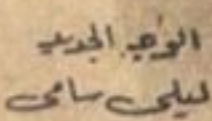 الوجه الجديد
ليلى سامى